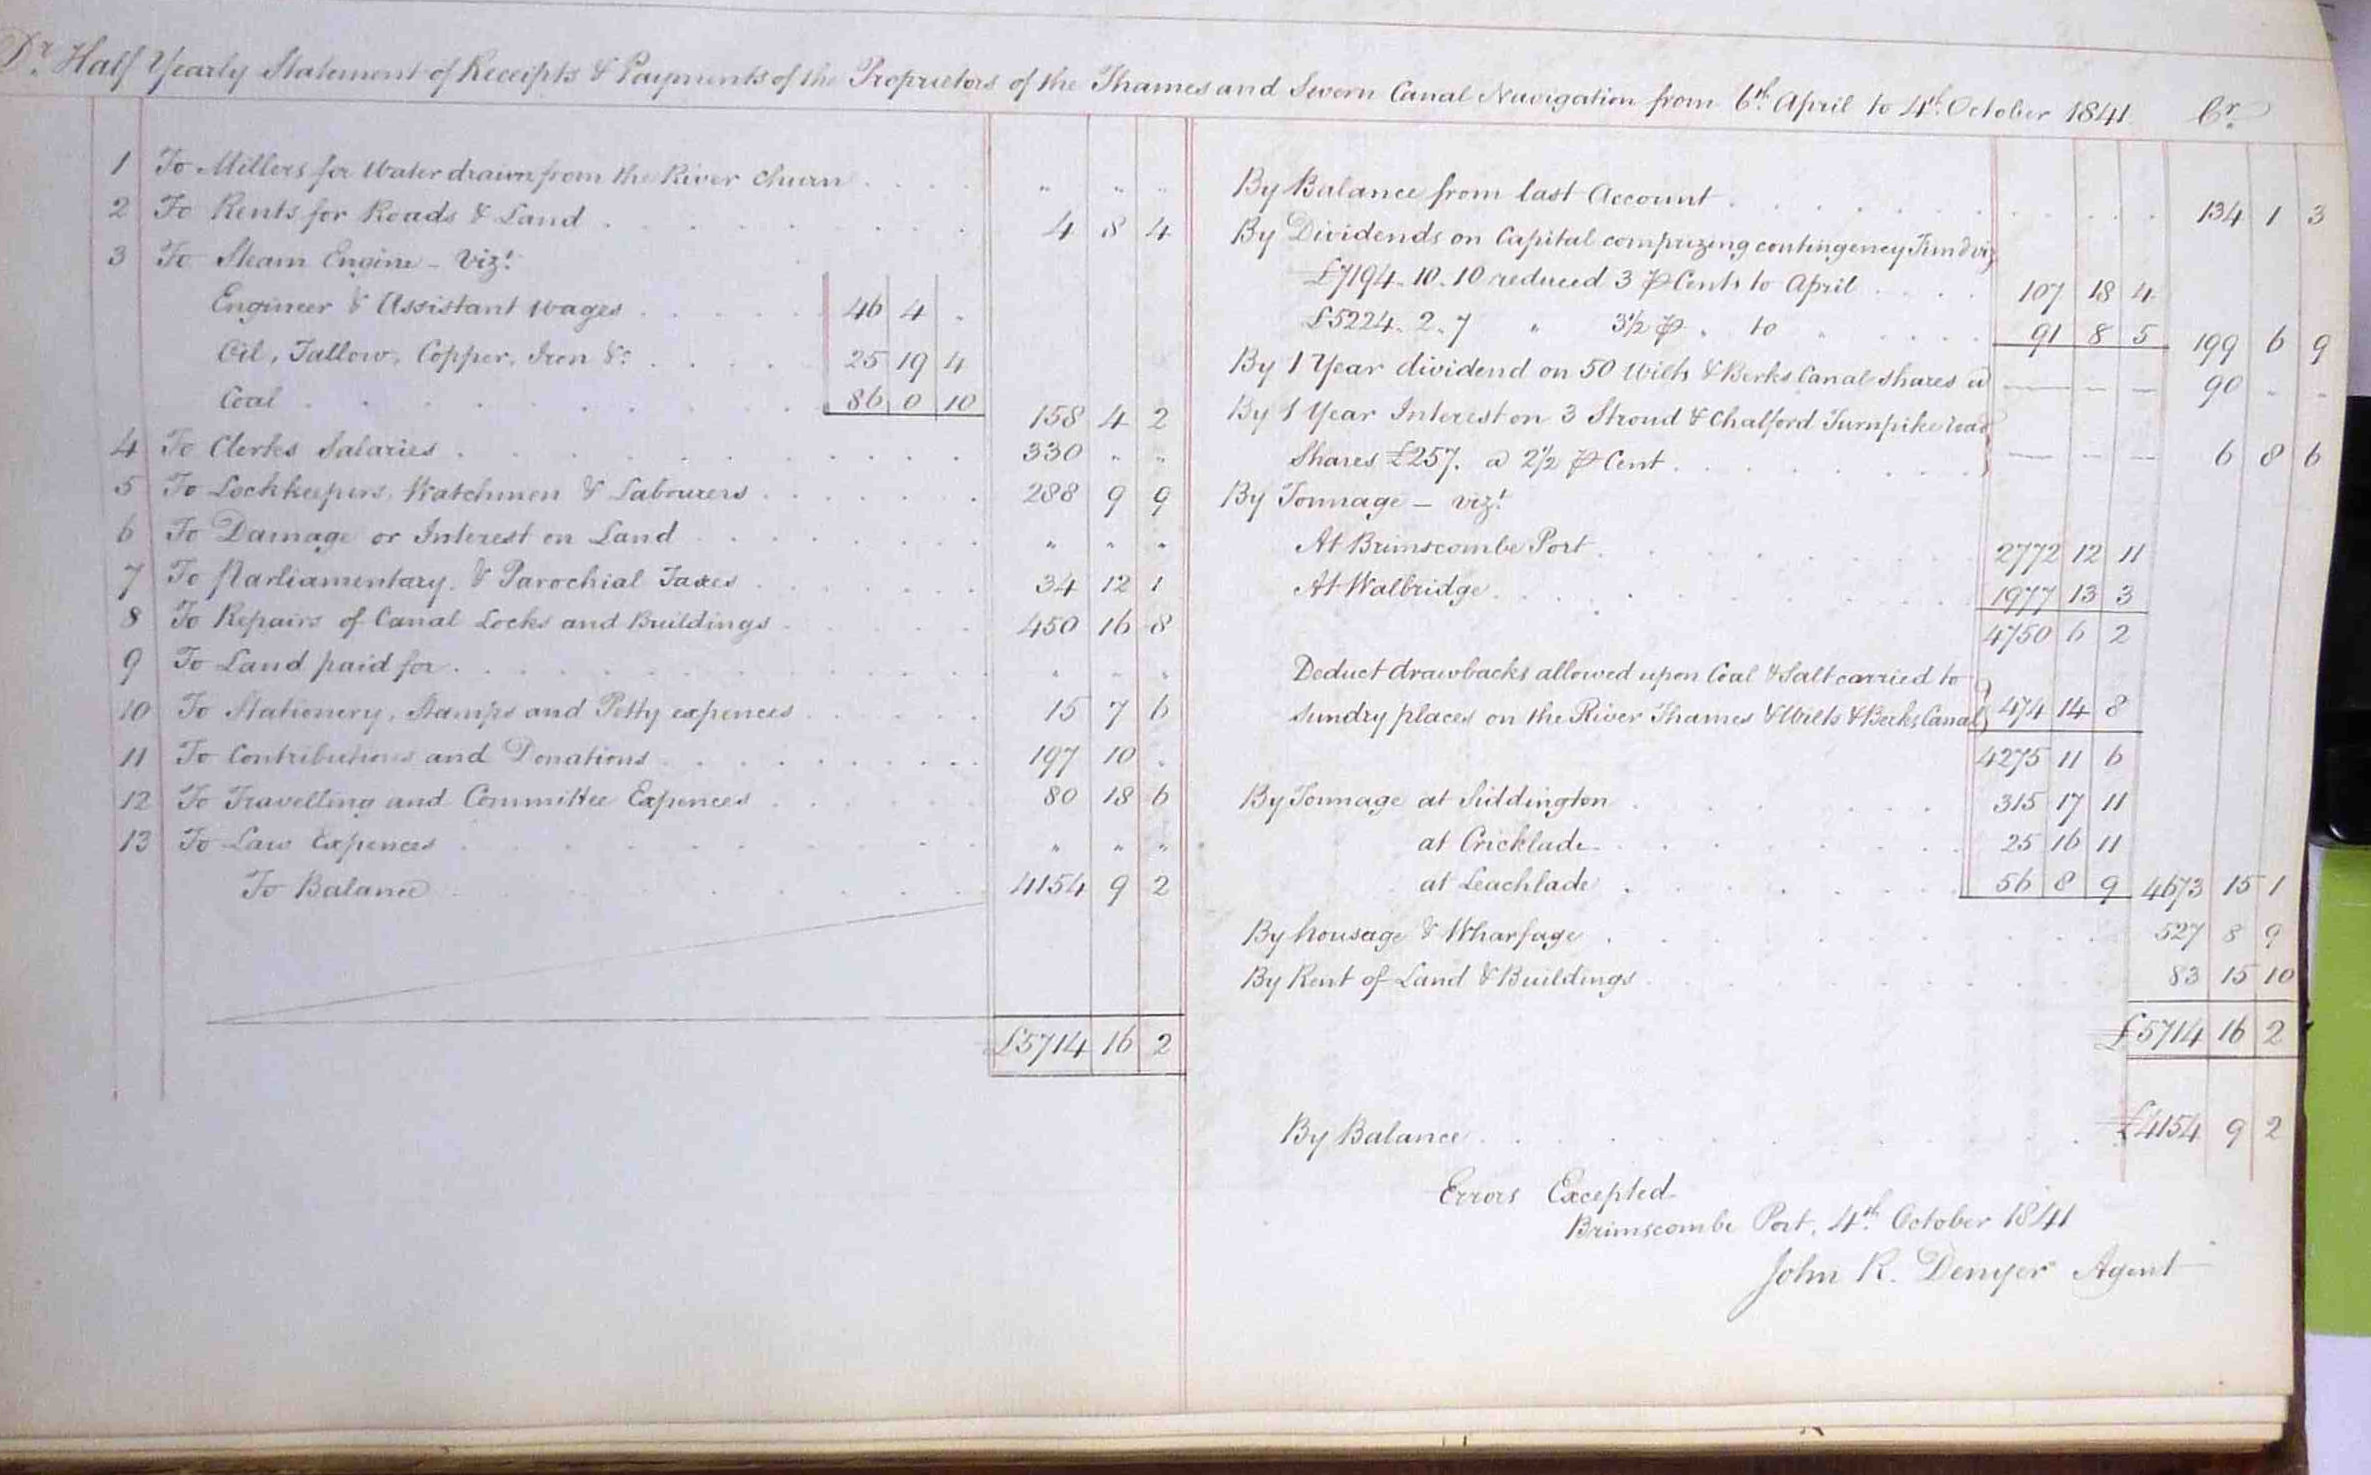 Dr. Half Yearly Statement of Receipts & Payments of the Proprietors of the Thames and Severn Canal Navigation from 6th April to 4th October 1841 Cr.
1 To Millers for Water drawn from the River Churn . . . . " " "
2 To Rents for Roads & Land . . . . 4 8 4
3 To Steam Engine - Vizt.
Engineer & Assistant wages . . . . 46 4 .
Oil, Tallow, Copper, Iron &c. . . . . 25 19 4
Coal . . . . 86 0 10 158 4 2
4 To Clerks Salaries . . . . 330 " "
5 To Lockkeepers, Watchmen & Labourers . . . . 288 9 9
6 To Damage or Interest on Land . . . . " " "
7 To Parliamentary & Parochial Taxes . . . . 34 12 1
8 To Repairs of Canal Locks and Buildings . . . . 450 16 8
9 To Land paid for . . . . " " "
10 To Stationery, Stamps and Petty expences . . . . 15 7 6
11 To Contributions and Donations . . . . 197 10 .
12 To Travelling and Committee Expences . . . . 80 18 6
13 To Law Expences . . . . " " "
To Balance . . . . 4154 9 2
£5714 16 2
By Balance from last Account . . . . 134 1 3
By Dividends on Capital comprizing contingency Fund viz
£7194. 10. 10 reduced 3 ⅌ Cents to April . . . . 107 18 4
£5224. 2. 7 " 3½ ⅌ " to " . . . . 91 8 5 199 6 9
By 1 Year dividend on 50 Wilts & Berks Canal shares a — — — 90 " "
By 1 Year Interest on 3 Stroud & Chalford Turnpike road
Shares £257. a 2½ ⅌ Cent . . . . — — — 6 8 6
By Tonnage - vizt.
At Brimscombe Port . . . . 2772 12 11
At Walbridge . . . . 1977 13 3
4750 6 2
Deduct drawbacks allowed upon Coal & Salt carried to
sundry places on the River Thames & Wilts & Berks Canal 474 14 8
4275 11 6
By Tonnage at Siddington . . . . 315 17 11
at Cricklade . . . . 25 16 11
at Leachlade . . . . 56 8 9 4673 15 1
By housage & Wharfage . . . . 527 8 9
By Rent of Land & Buildings . . . . 83 15 10
£5714 16 2
By Balance . . . . £4154 9 2
Errors Excepted
Brimscombe Port, 4th October 1841
John R. Denyer Agent